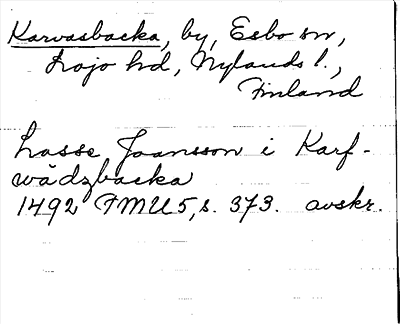 Karvasbacka, by, Esbo sn,
Lojo hd, Nylands l.,
Finland
Lasse Joansson i Karf-
wådzbacka
1492 FMU 5, s. 373. avskr.